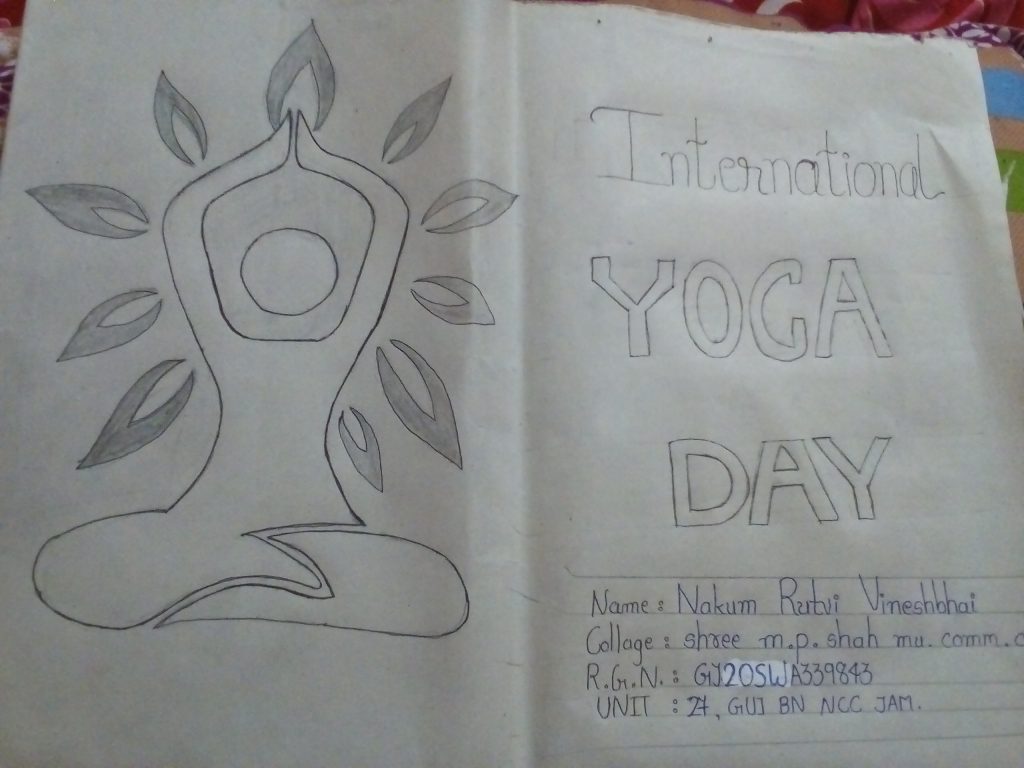 International
YOGA
DAY
Name : Nakum Rutvi Vineshbhai
Collage : shree m.p. shah mu. comm.
R.G.N. : GJ20SWA339843
UNIT : 27, GUJ BN NCC JAM.